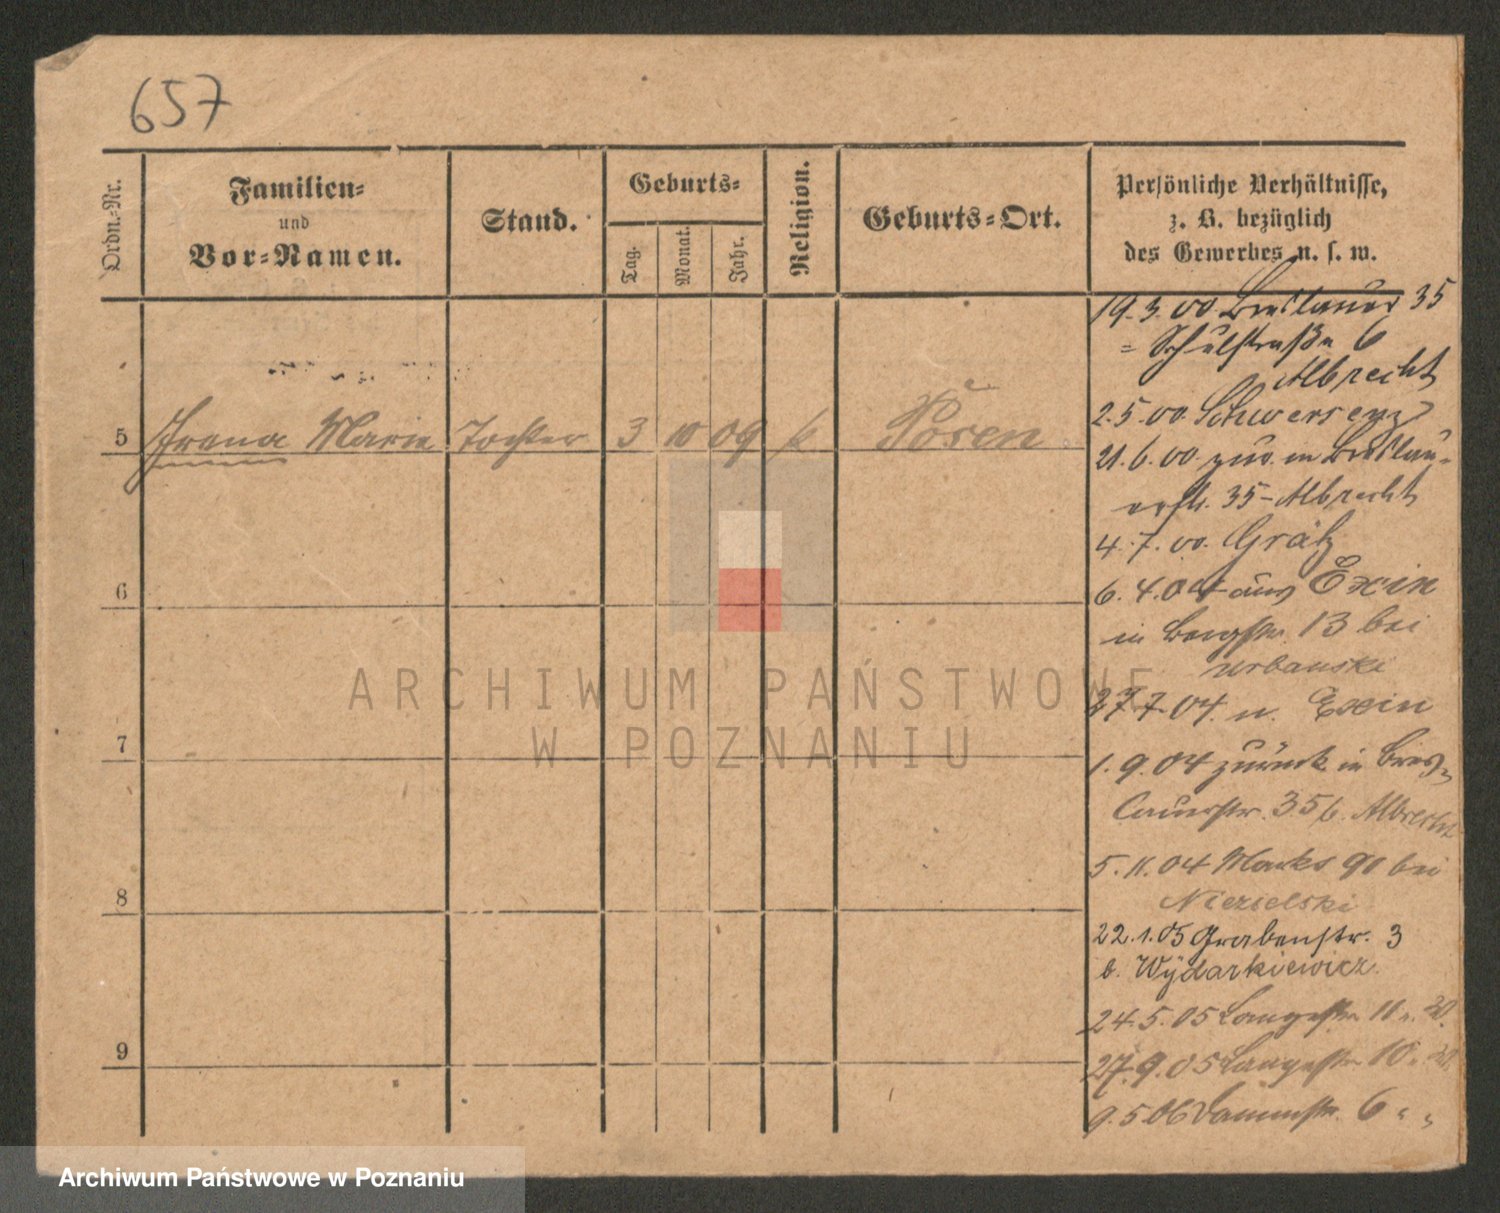 657
Ordn.-Nr.
Familien-
und
Vor-Namen.
Stand.
Geburts-
Tag.
Monat.
Jahr.
Religion.
Geburts-Ort.
Persönliche Verhältnisse,
z. B. bezüglich
des Gewerbes u. s. w.
5 Irena Marie Tochter 3 10 09 k Posen
6
7
8
9
19.3.00 Breslauer 35
= Schulstraße 6
Albrecht
2.5.00 Schwersenz
21.6.00 zur. in Breslau-
erstr. 35 - Albrecht
4.7.00. Grätz
6.4.04 aus Exin
in Bergstr. 13 bei
Urbanski
27.7.04. n. Exin
1.9.04 zurück in Bres-
lauerstr. 35 b. Albrecht
5.11.04 Markt 90 bei
Niezielski
22.1.05 Grabenstr. 3
b. Wydarkiewicz.
24.5.05 Langestr. 11
27.9.05 Langestr. 10
9.5.06 Dammstr. 6 " "
ARCHIWUM PAŃSTWOWE
W POZNANIU
Archiwum Państwowe w Poznaniu